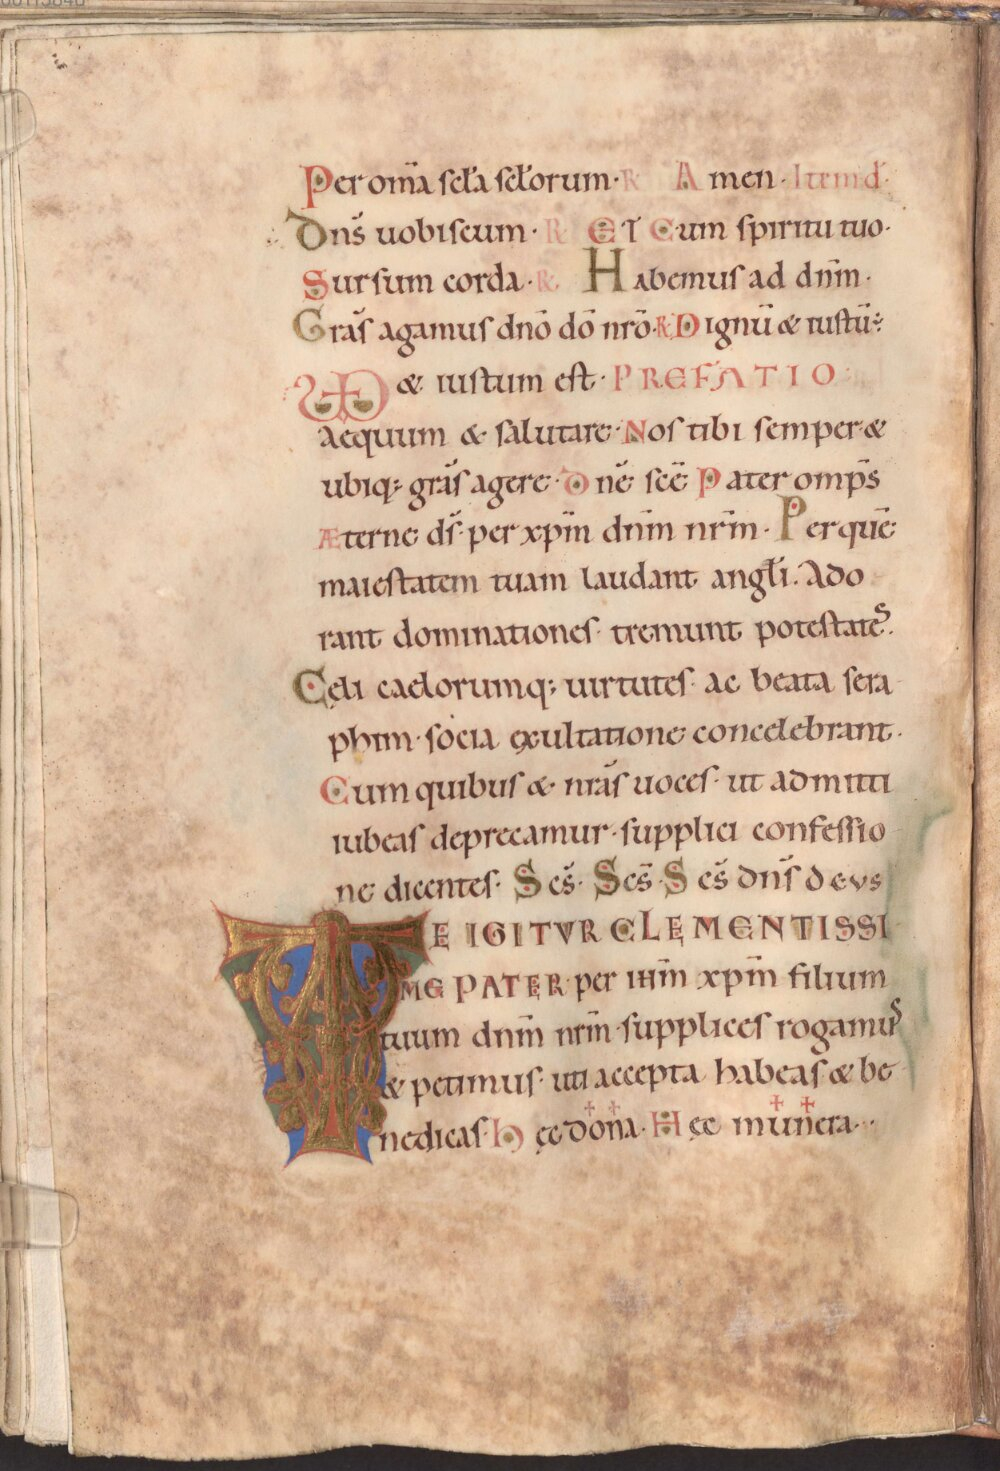 Per om̅a scl̅a scl̅orum· R Amen· Item d̅·
Dn̅s uobiscum· R ET Cum spiritu tuo·
Sursum corda· R Habemus ad dn̅m·
Gra̅s agamus dn̅o do̅ nro̅· R Dignu̅ & iustu̅·
VD & iustum est· PREFATIO
aequum & salutare· Nos tibi semper &
ubiq; gra̅s agere· Dn̅e sce̅ Pater omp̅s
Æterne ds̅· per xp̅m dn̅m nr̅m· Per que̅
maiestatem tuam laudant angl̅i. Ado
rant dominationes· tremunt potestates.
Celi caelorumq; uirtutes· ac beata sera
phim· socia exultatione concelebrant·
Cum quibus & nra̅s uoces· ut admitti
iubeas deprecamur· supplici confessio
ne dicentes· Sc̅s· Sc̅s· Sc̅s dn̅s deus
TE IGITVR CLEMENTISSI
ME PATER· per ih̅m xp̅m filium
tuum dn̅m nr̅m· supplices rogamus
& petimus· uti accepta habeas & be
nedicas· Hęc do✝na✝· Hęc mu✝ne✝ra··